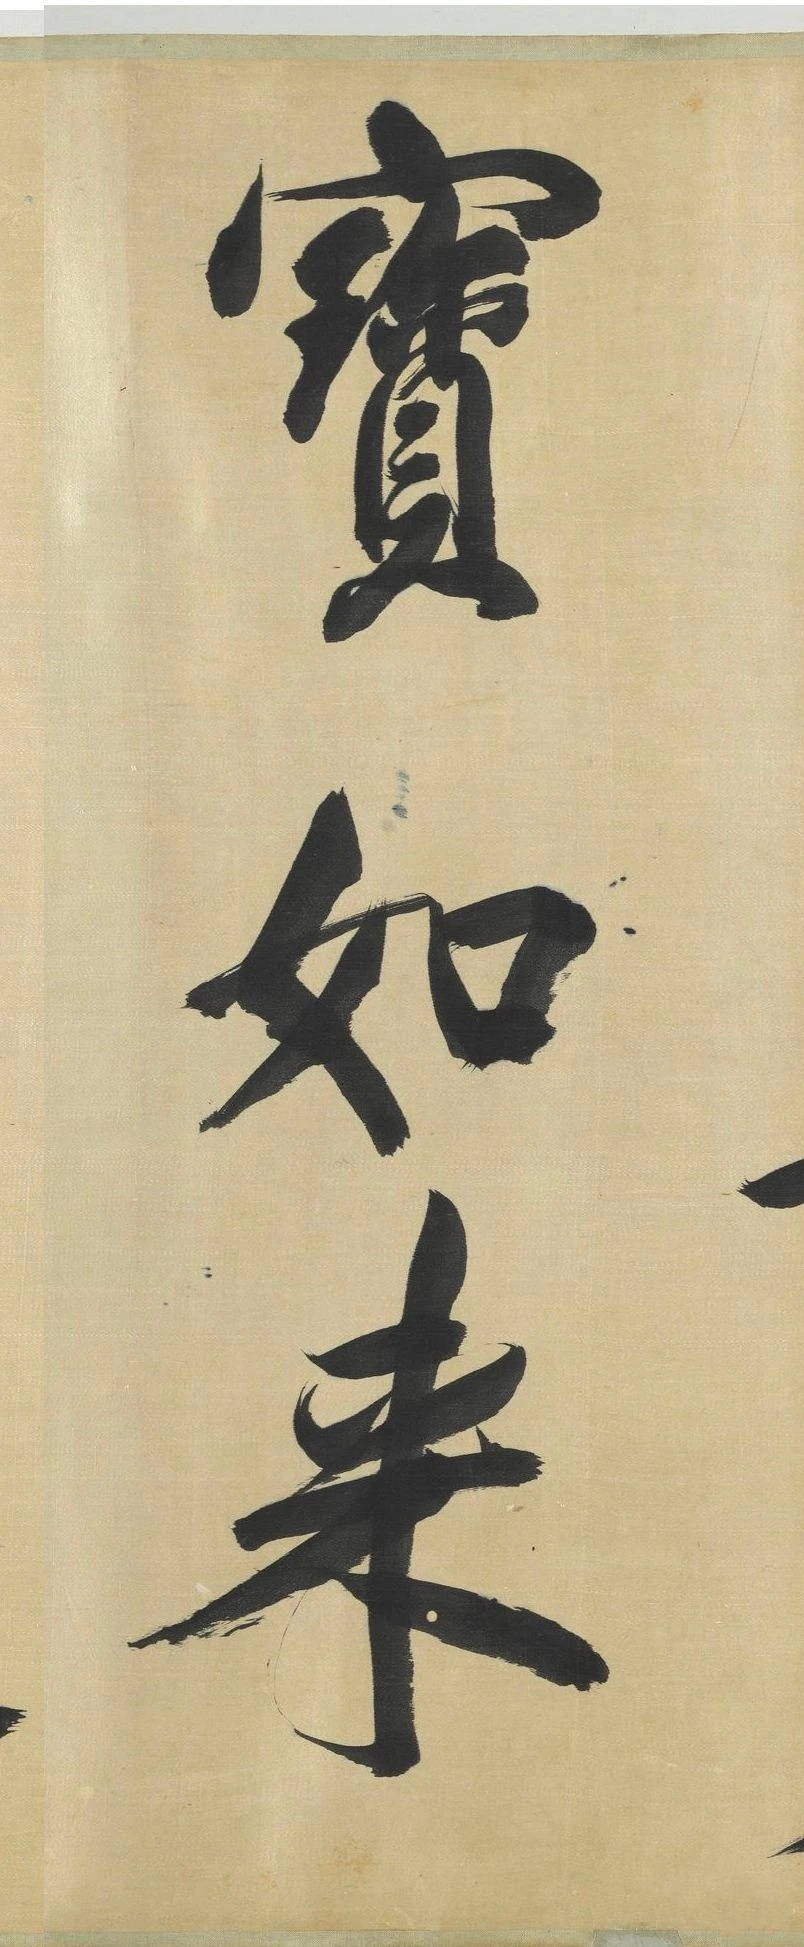 寶如来